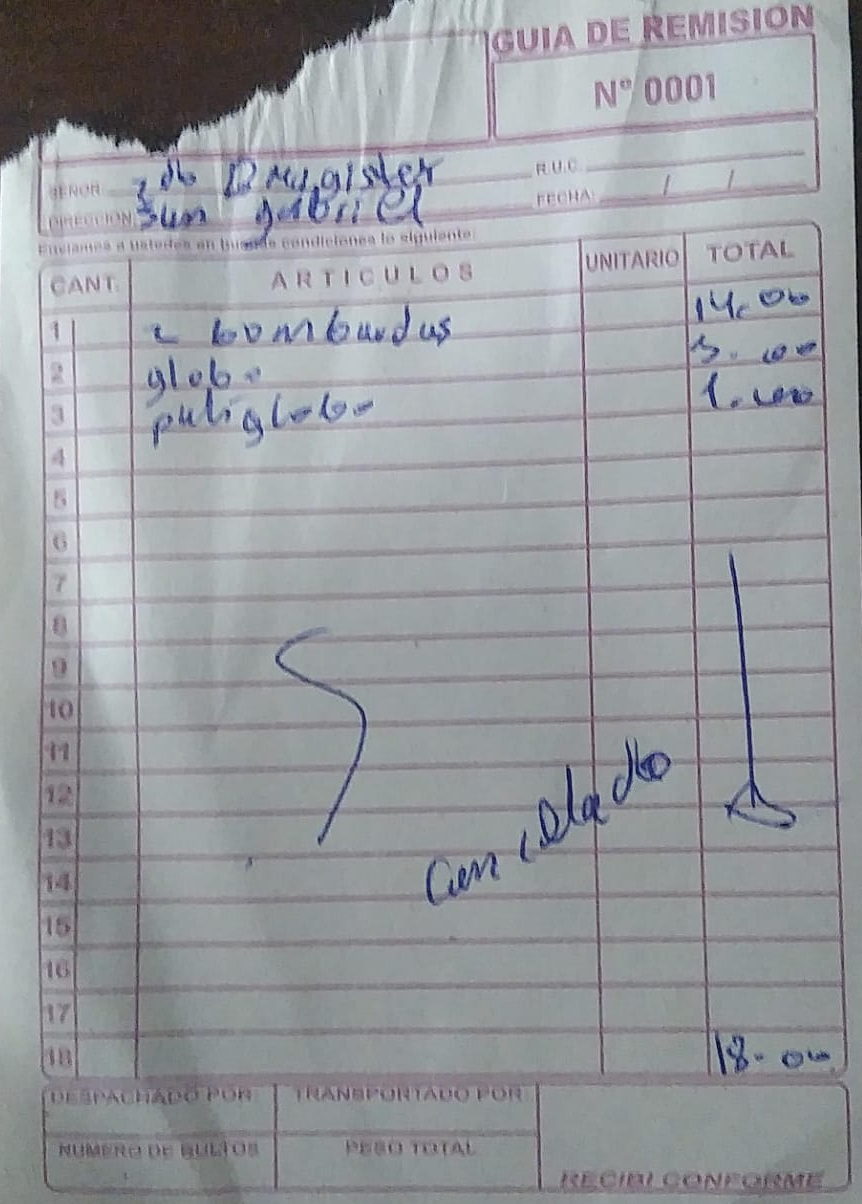 GUIA DE REMISION
N° 0001
SEÑOR
R.U.C.
DIRECCION San gabriel
FECHA: / /
Enviamos a ustedes en buenas condiciones lo siguiente:
CANT. ARTICULOS UNITARIO TOTAL
1 2 bombardas 14.00
2 globo 3.00
3 putiglobo 1.00
4
5
6
7
8
9
10
11
12
13
cancelado
14
15
16
17
18 18.00
DESPACHADO POR TRANSPORTADO POR
NUMERO DE BULTOS PESO TOTAL
RECIBI CONFORME